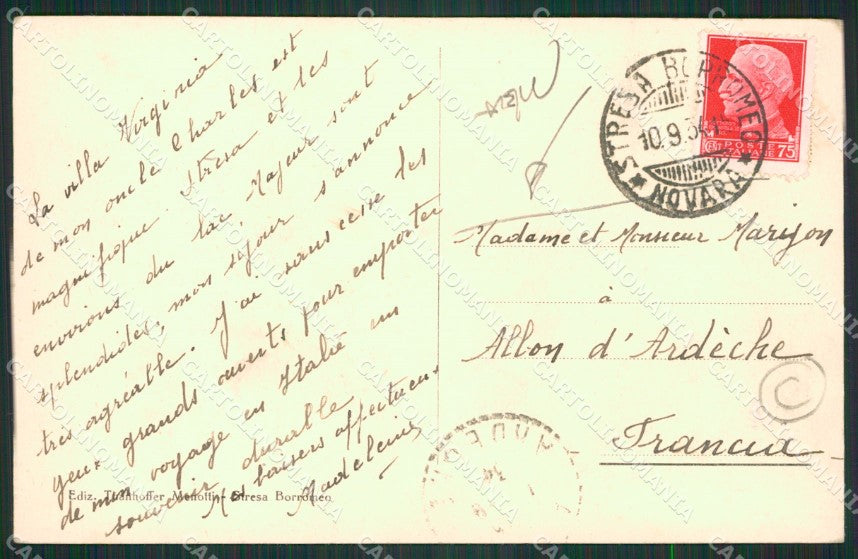 La villa Virginia
de mon oncle Charles est
magnifique. Stresa et les
environs du lac Majeur sont
splendides, mon séjour s'annonce
très agréable. J'ai sans cesse les
yeux grands ouverts pour emporter
de mon voyage en Italie un
souvenir durable
Mes baisers affectueux
Madeleine
Ediz. Menotti - Stresa Borromeo
STRESA BORROMEO
10.9.34
NOVARA
POSTE
ITALIANE
75
Madame et Monsieur Marijon
à
Allon d'Ardèche
Francia
C
CARTOLINOMANIA